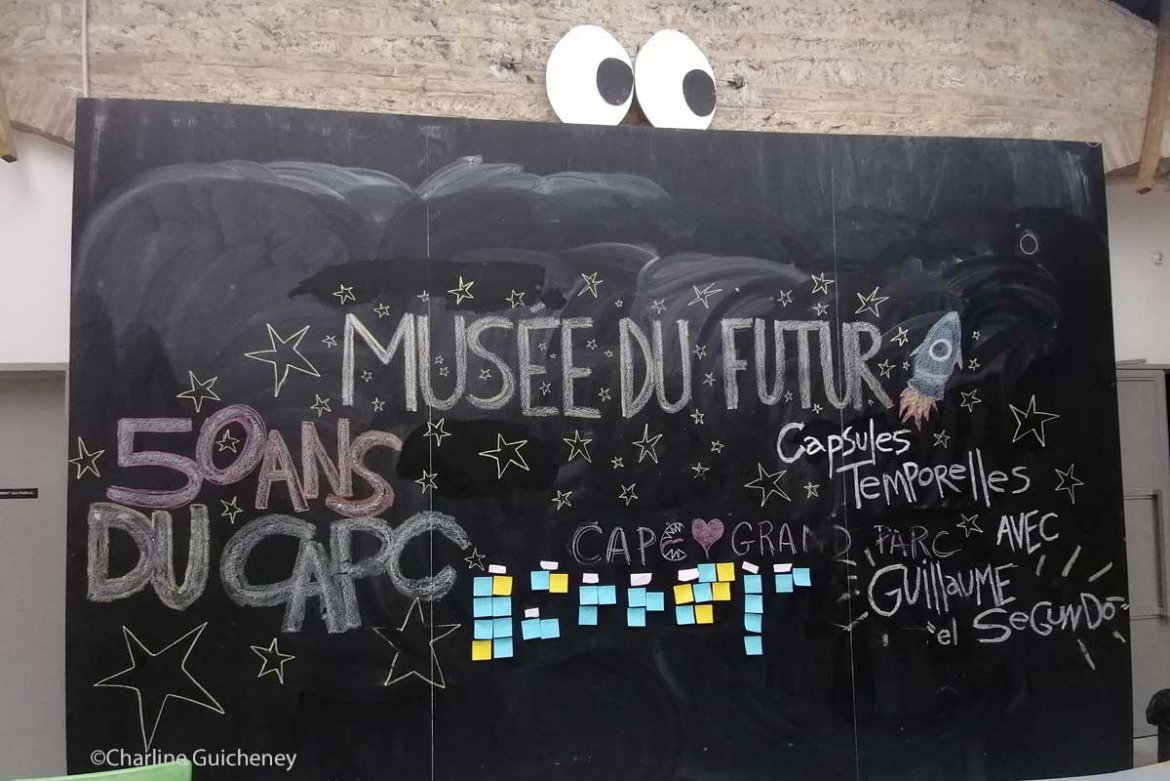 MUSÉE DU FUTUR
50 ANS
DU CAPC
CAPSULES
TEMPORELLES
AVEC
GUILLAUME
"el SEGUNDO"
CAPC ❤ GRAND PARC
©Charline Guicheney